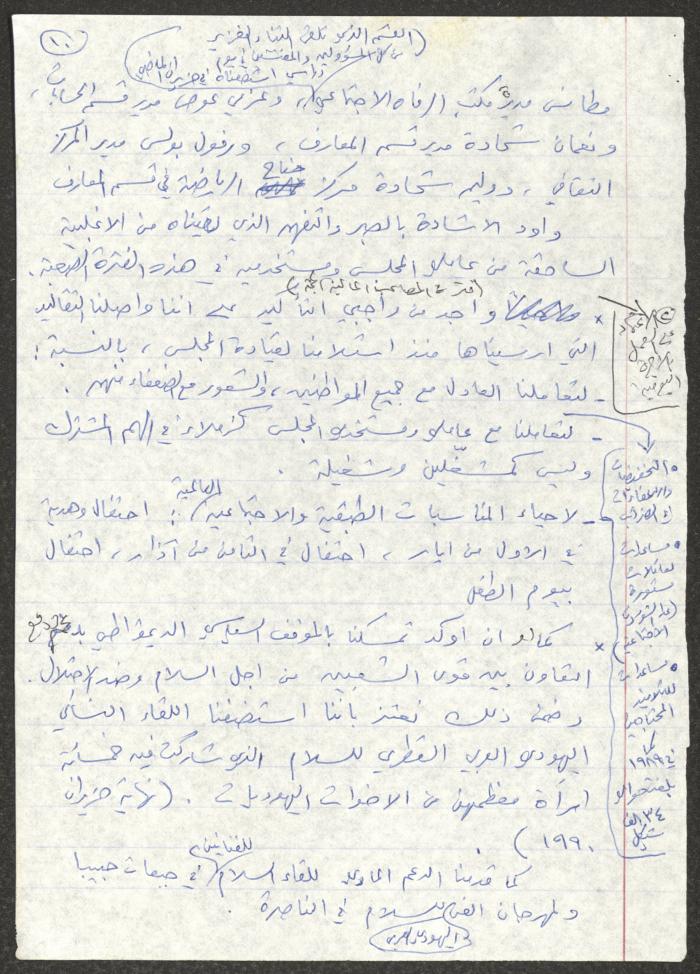 ١٠
(القسم الذي تلقى الثناء الغزير
من كل المسؤولين والمفتشين في يوم
دراسي استضفناه في حزيران الماضي)
مطانس مدير مكتب الرفاه الاجتماعي، وعزمي عوض مدير قسم الحسابات،
ونعمان شحادة مدير قسم المعارف، ورفول بولس مدير المركز
الثقافي، ووليم شحادة مركز جناح الرياضة في قسم المعارف
واود الاشادة بالصبر والتفهم الذي لقيناه من الاغلبية
الساحقة من عاملي المجلس ومستخدميه في هذه الفترة الصعبة.
(فترة المصاعب المالية الجمة)
× واجد من واجبي التأكيد على اننا واصلنا التقاليد
التي ارسيناها منذ استلامنا لقيادة المجلس، بالنسبة:
- لتعاملنا العادل مع جميع المواطنين، والشعور مع الضعفاء منهم.
- لتعاملنا مع عاملي ومستخدمي المجلس كزملاء في الهم المشترك
وليس كمشغّلين وشغيلة.
- لاحياء المناسبات الطبقية والاجتماعية العالمية: احتفال وهدية
في الاول من ايار، احتفال في الثامن من آذار، احتفال
بيوم الطفل
× كما لو ان اوكد تمسكنا بالموقف السلامي الديموقراطي
التعاون بين قوى الشعبين من اجل السلام وضد الاحتلال.
وضمن ذلك نعتز باننا استضفنا اللقاء النسائي
اليهودي العربي القطري للسلام الذي شاركت فيه خمسمائة
امرأة معظمهن من الاخوات اليهوديات. (نهاية حزيران
١٩٩٠).
كما قدمنا الدعم المادي للقاء السلام للفنانين في جبعات حبيبا
ولمهرجان الفن للسلام في الناصرة.
اليهودي العربي
على العمل
اليومية
• التخفيضات
والاعفاءات
• مساعدات
لعائلات
مستورة
• مساعدات
للتلاميذ
المحتاجين
كما
في ١٩٨٩
٣٤ الف
شيكل